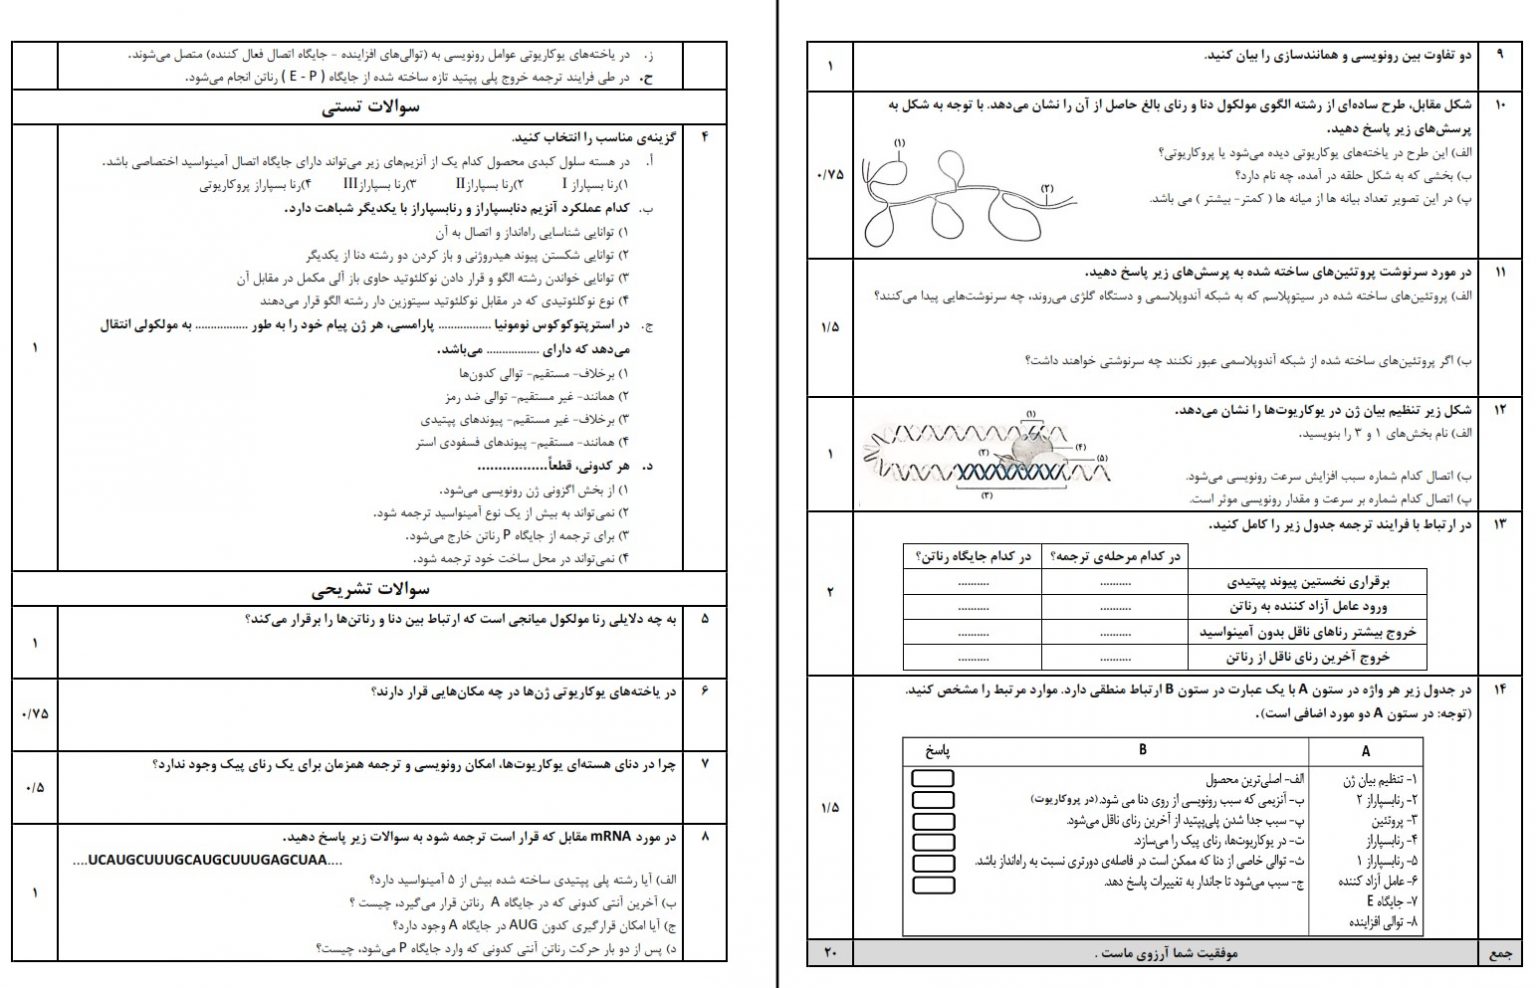 ز. در یاخته‌های یوکاریوتی عوامل رونویسی به (توالی‌های افزاینده - جایگاه اتصال فعال کننده) متصل می‌شوند.
ح. در طی فرایند ترجمه خروج پلی پپتید تازه ساخته شده از جایگاه ( E - P ) رناتن انجام می‌شود.
سوالات تستی
۴ گزینه‌ی مناسب را انتخاب کنید. ۱
أ. در هسته سلول کبدی محصول کدام یک از آنزیم‌های زیر می‌تواند دارای جایگاه اتصال آمینواسید اختصاصی باشد.
۱)رنا بسپاراز I ۲)رنا بسپارازII ۳)رنا بسپارازIII ۴)رنا بسپاراز پروکاریوتی
ب. کدام عملکرد آنزیم دنابسپاراز و رنابسپاراز با یکدیگر شباهت دارد.
۱) توانایی شناسایی راه‌انداز و اتصال به آن
۲) توانایی شکستن پیوند هیدروژنی و باز کردن دو رشته دنا از یکدیگر
۳) توانایی خواندن رشته الگو و قرار دادن نوکلئوتید حاوی باز آلی مکمل در مقابل آن
۴) نوع نوکلئوتیدی که در مقابل نوکلئوتید سیتوزین دار رشته الگو قرار می‌دهند
ج. در استرپتوکوکوس نومونیا ................ پارامسی، هر ژن پیام خود را به طور ................ به مولکولی انتقال
می‌دهد که دارای ................ می‌باشد.
۱) برخلاف- مستقیم- توالی کدون‌ها
۲) همانند- غیر مستقیم- توالی ضد رمز
۳) برخلاف- غیر مستقیم- پیوندهای پپتیدی
۴) همانند- مستقیم- پیوندهای فسفودی استر
د. هر کدونی، قطعاً................
۱) از بخش اگزونی ژن رونویسی می‌شود.
۲) نمی‌تواند به بیش از یک نوع آمینواسید ترجمه شود.
۳) برای ترجمه از جایگاه P رناتن خارج می‌شود.
۴) نمی‌تواند در محل ساخت خود ترجمه شود.
سوالات تشریحی
۵ به چه دلایلی رنا مولکول میانجی است که ارتباط بین دنا و رناتن‌ها را برقرار می‌کند؟ ۱
۶ در یاخته‌های یوکاریوتی ژن‌ها در چه مکان‌هایی قرار دارند؟ ۰/۷۵
۷ چرا در دنای هسته‌ای یوکاریوت‌ها، امکان رونویسی و ترجمه همزمان برای یک رنای پیک وجود ندارد؟ ۰/۵
۸ در مورد mRNA مقابل که قرار است ترجمه شود به سوالات زیر پاسخ دهید. ۱
....UCAUGCUUUGCAUGCUUUGAGCUAA....
الف) آیا رشته پلی پپتیدی ساخته شده بیش از ۵ آمینواسید دارد؟
ب) آخرین آنتی کدونی که در جایگاه A رناتن قرار می‌گیرد، چیست ؟
ج) آیا امکان قرارگیری کدون AUG در جایگاه A وجود دارد؟
د) پس از دو بار حرکت رناتن آنتی کدونی که وارد جایگاه P می‌شود، چیست؟
۹ دو تفاوت بین رونویسی و همانندسازی را بیان کنید. ۱
۱۰ شکل مقابل، طرح ساده‌ای از رشته الگوی مولکول دنا و رنای بالغ حاصل از آن را نشان می‌دهد. با توجه به شکل به
پرسش‌های زیر پاسخ دهید. ۰/۷۵
الف) این طرح در یاخته‌های یوکاریوتی دیده می‌شود یا پروکاریوتی؟
ب) بخشی که به شکل حلقه در آمده، چه نام دارد؟
پ) در این تصویر تعداد بیانه ها از میانه ها ( کمتر- بیشتر ) می باشد.
(۱)
(۲)
۱۱ در مورد سرنوشت پروتئین‌های ساخته شده به پرسش‌های زیر پاسخ دهید. ۱/۵
الف) پروتئین‌های ساخته شده در سیتوپلاسم که به شبکه آندوپلاسمی و دستگاه گلژی می‌روند، چه سرنوشت‌هایی پیدا می‌کنند؟
ب) اگر پروتئین‌های ساخته شده از شبکه آندوپلاسمی عبور نکنند چه سرنوشتی خواهند داشت؟
۱۲ شکل زیر تنظیم بیان ژن در یوکاریوت‌ها را نشان می‌دهد. ۱
الف) نام بخش‌های ۱ و ۳ را بنویسید.
ب) اتصال کدام شماره سبب افزایش سرعت رونویسی می‌شود.
پ) اتصال کدام شماره بر سرعت و مقدار رونویسی موثر است.
(۱)
(۴)
(۲)
(۵)
(۳)
۱۳ در ارتباط با فرایند ترجمه جدول زیر را کامل کنید. ۲
در کدام مرحله‌ی ترجمه؟ در کدام جایگاه رناتن؟
برقراری نخستین پیوند پپتیدی .......... ..........
ورود عامل آزاد کننده به رناتن .......... ..........
خروج بیشتر رناهای ناقل بدون آمینواسید .......... ..........
خروج آخرین رنای ناقل از رناتن .......... ..........
۱۴ در جدول زیر هر واژه در ستون A با یک عبارت در ستون B ارتباط منطقی دارد. موارد مرتبط را مشخص کنید.
(توجه: در ستون A دو مورد اضافی است). ۱/۵
A B پاسخ
۱- تنظیم بیان ژن الف- اصلی‌ترین محصول
۲- رنابسپاراز ۲ ب- آنزیمی که سبب رونویسی از روی دنا می شود.(در پروکاریوت)
۳- پروتئین پ- سبب جدا شدن پلی‌پپتید از آخرین رنای ناقل می‌شود.
۴- رنابسپاراز ت- در یوکاریوت‌ها، رنای پیک را می‌سازد.
۵- رنابسپاراز ۱ ث- توالی خاصی از دنا که ممکن است در فاصله‌ی دورتری نسبت به راه‌انداز باشد.
۶- عامل آزاد کننده ج- سبب می‌شود تا جاندار به تغییرات پاسخ دهد.
۷- جایگاه E
۸- توالی افزاینده
جمع موفقیت شما آرزوی ماست . ۲۰